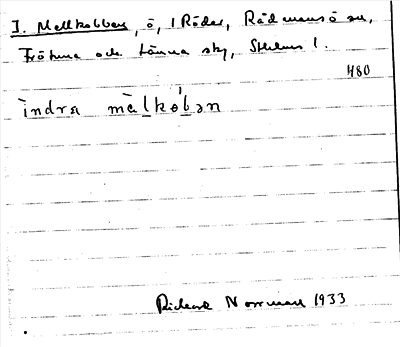 I. Mellkobben, ö, i Röder, Rådmansö sn,
Frötuna och Länna skg, Sthlms l.
H80
indra mèlkòbən
Rickard Norrman 1933